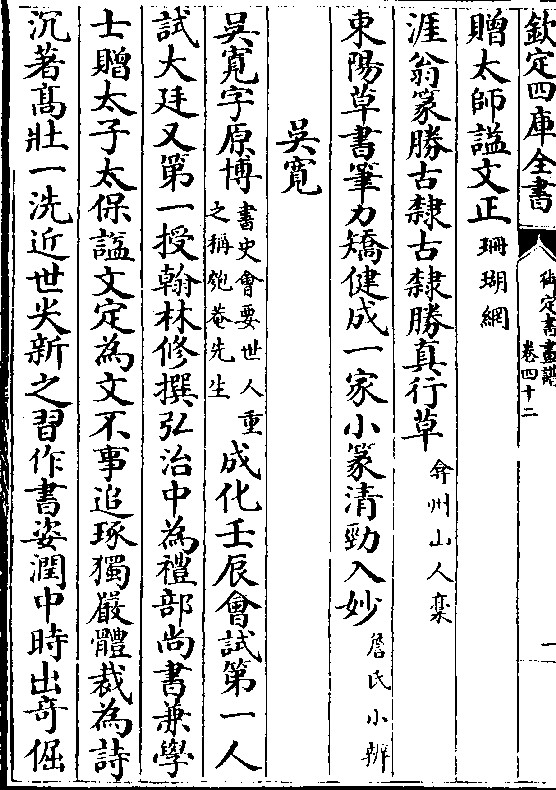 欽定四庫全書
御定書畫譜
卷四十二
一
贈太師諡文正珊瑚網
涯翁篆勝古隸古隸勝真行草弇州山人稾
東陽草書筆力矯健成一家小篆清勁入妙詹氏小辨
吳寛
吳寛字原博書史㑹要世人重之稱匏菴先生成化壬辰㑹試第一人
試大廷又第一授翰林修撰弘治中為禮部尚書兼學
士贈太子太保諡文定為文不事追琢獨嚴體裁為詩
沉著髙壯一洗近世尖新之習作書姿潤中時出竒倔